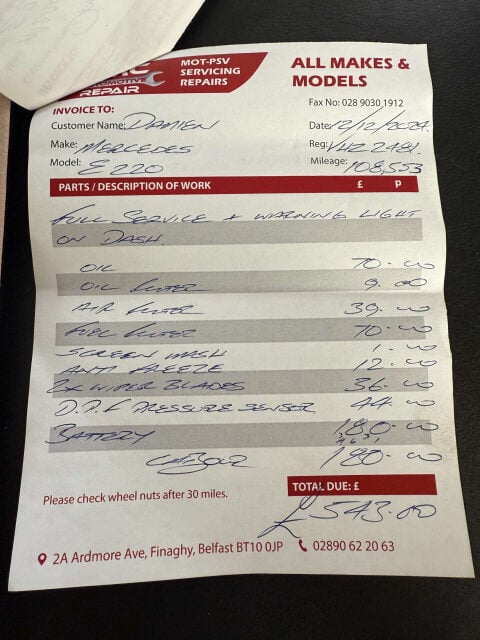 MOT-PSV
SERVICING
REPAIRS
AUTOMOTIVE
REPAIR
ALL MAKES &
MODELS
Fax No: 028 9030 1912
INVOICE TO:
Customer Name: DAMIEN
Date: 12/12/2024.
Make: MERCEDES
Reg: VHZ 2481.
Model: E220
Mileage: 108,553
PARTS / DESCRIPTION OF WORK £ p
FULL SERVICE + WARNING LIGHT
ON DASH.
OIL 70-00
OIL FILTER 9.00
AIR FILTER 39-00
FUEL FILTER 70-00
SCREEN WASH 1-00
ANTI FREEZE 12-00
2X WIPER BLADES 36-00
D.P.F PRESSURE SENSOR 44-00
BATTERY 180-00
LABOUR 180-00
TOTAL DUE: £
£543.00
Please check wheel nuts after 30 miles.
2A Ardmore Ave, Finaghy, Belfast BT10 0JP 02890 62 20 63